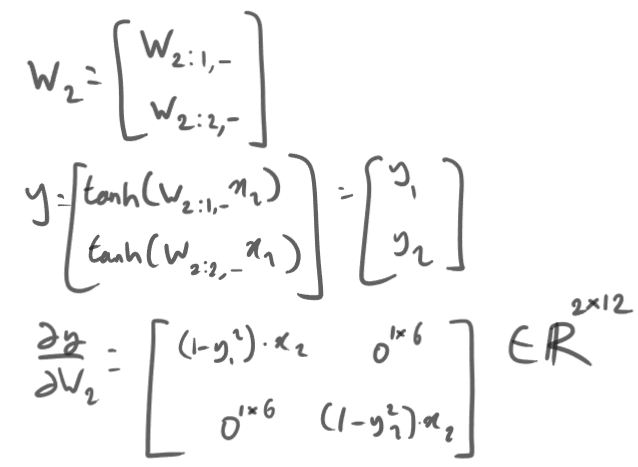 W₂ = [ W₂:₁,₋ ; W₂:₂,₋ ]
y = [ tanh(W₂:₁,₋ x₂) ; tanh(W₂:₂,₋ x₂) ] = [ y₁ ; y₂ ]
∂y/∂W₂ = [ (1-y₁²)·x₂  0^{1×6} ; 0^{1×6}  (1-y₂²)·x₂ ] ∈ ℝ^{2×12}